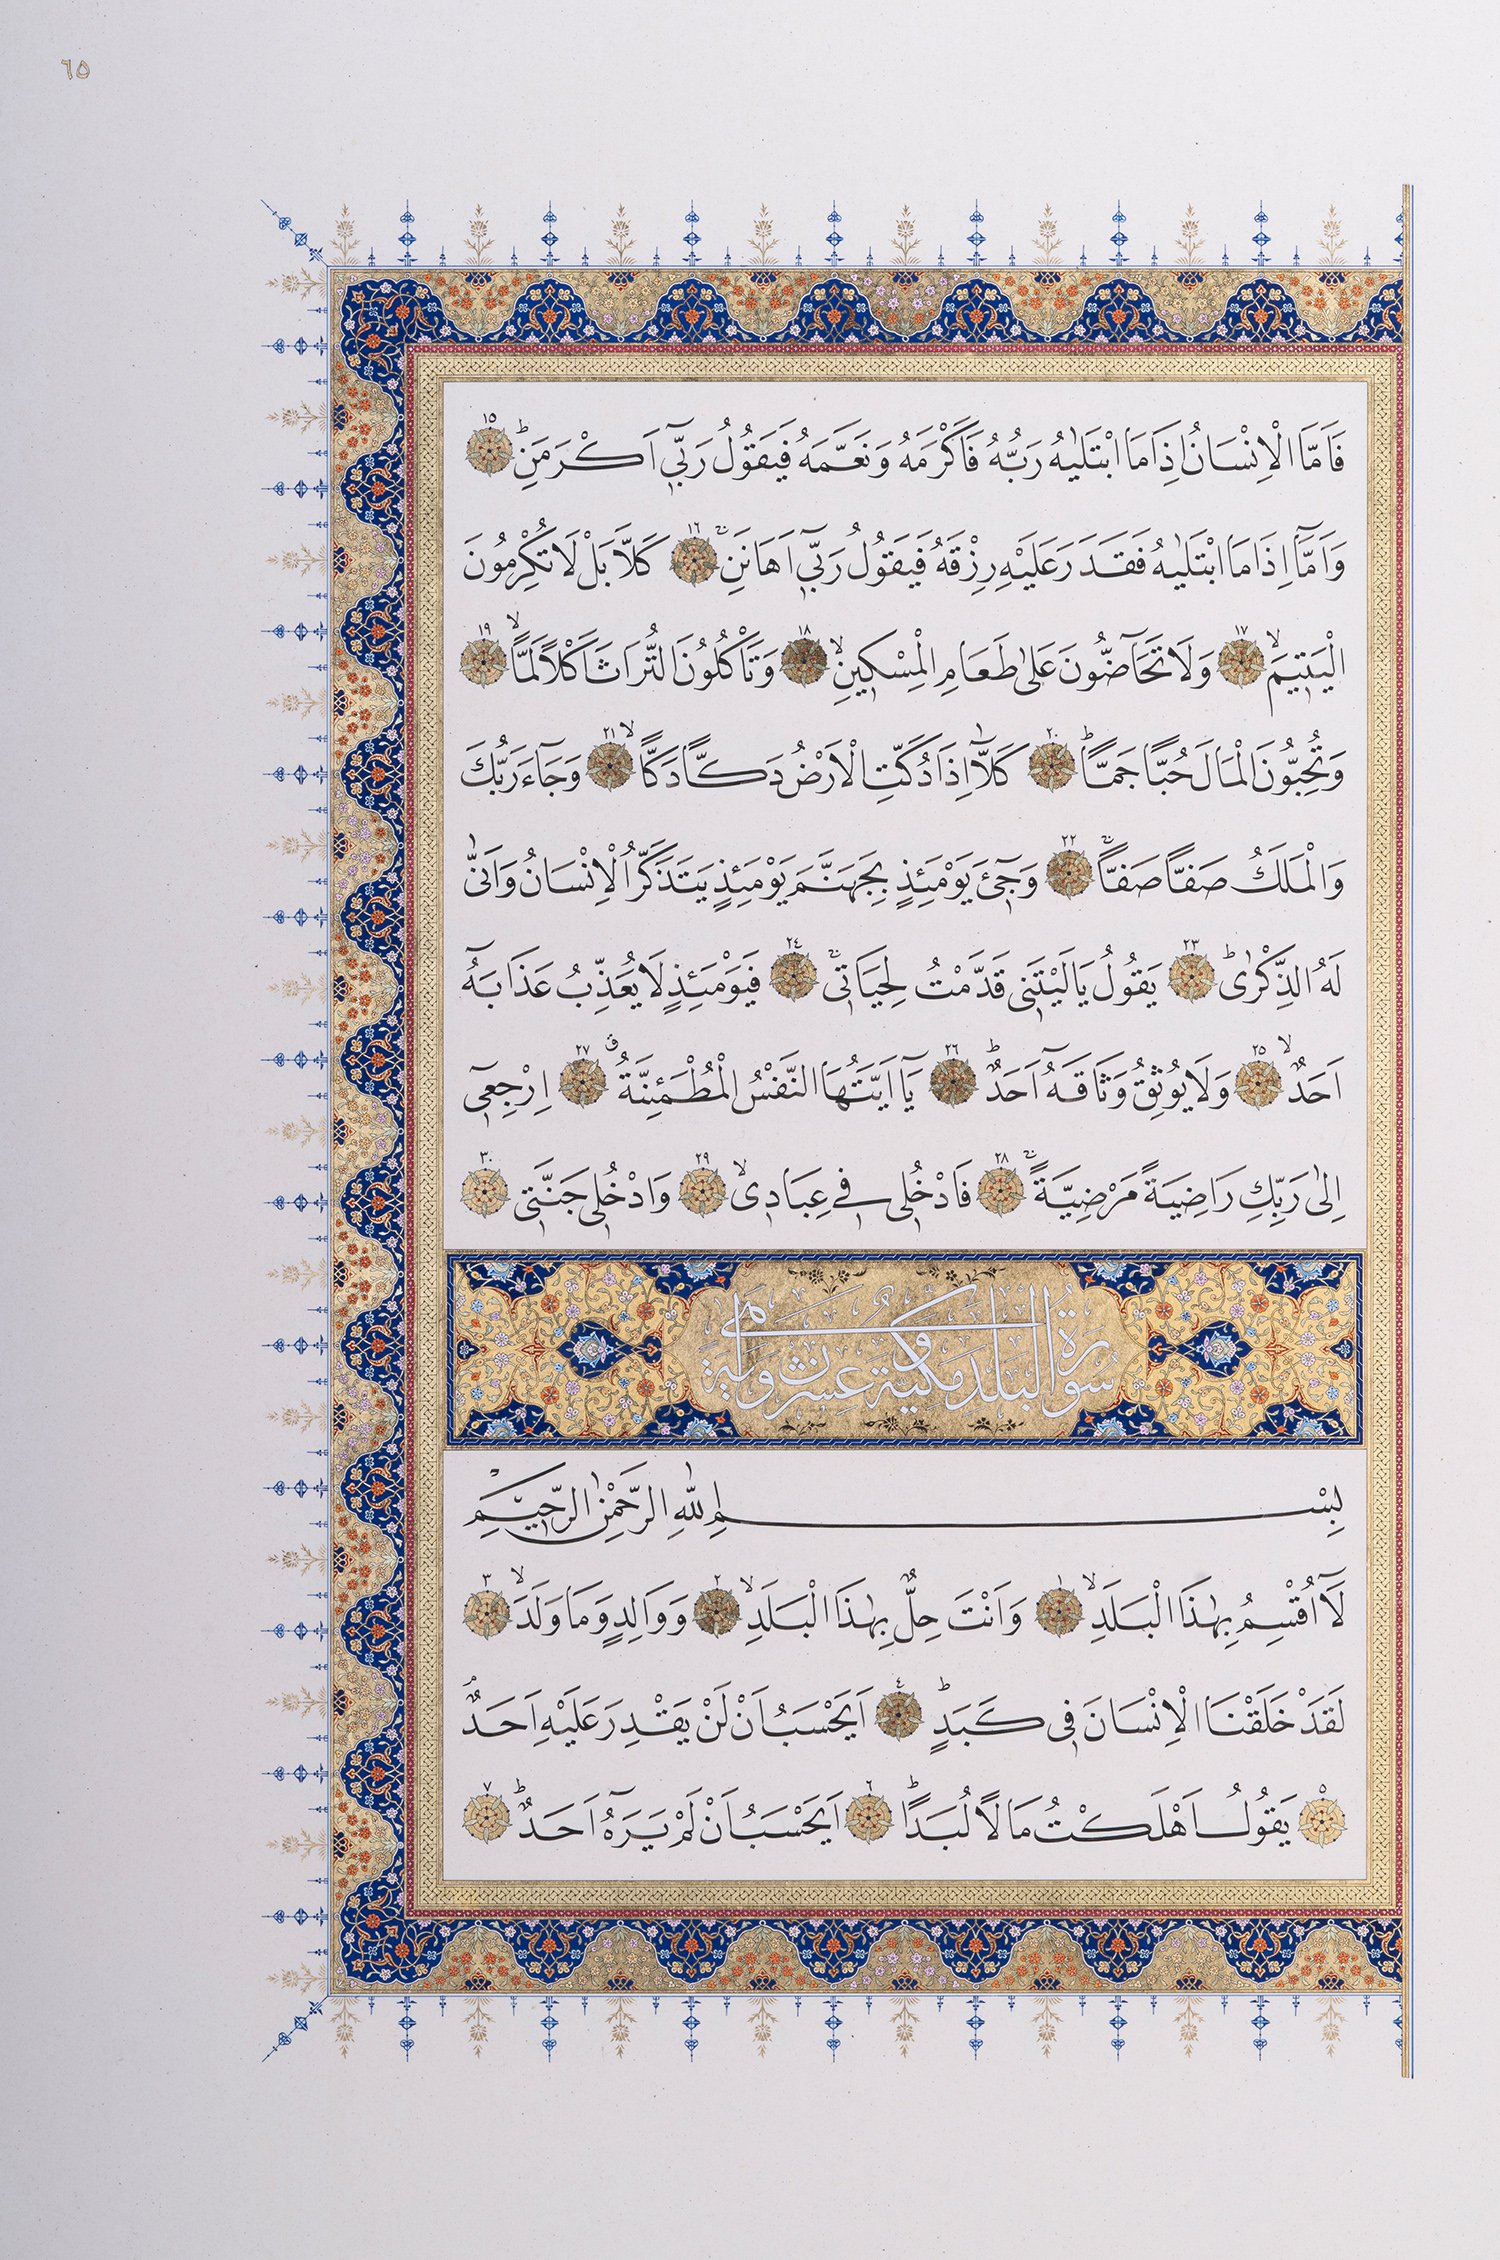 ٦٥
فَاَمَّا الْاِنْسَانُ اِذَا مَا ابْتَلٰيهُ رَبُّهُ فَاَكْرَمَهُ وَنَعَّمَهُ فَيَقُولُ رَبّ۪ٓي اَكْرَمَنِۜ ١٥
وَاَمَّٓا اِذَا مَا ابْتَلٰيهُ فَقَدَرَ عَلَيْهِ رِزْقَهُ فَيَقُولُ رَبّ۪ٓي اَهَانَنِۚ ١٦ كَلَّا بَلْ لَا تُكْرِمُونَ
الْيَت۪يمَۙ ١٧ وَلَا تَحَٓاضُّونَ عَلٰى طَعَامِ الْمِسْك۪ينِۙ ١٨ وَتَأْكُلُونَ التُّرَاثَ اَكْلًا لَمًّاۙ ١٩
وَتُحِبُّونَ الْمَالَ حُبًّا جَمًّاۜ ٢٠ كَلَّٓا اِذَا دُكَّتِ الْاَرْضُ دَكًّا دَكًّاۙ ٢١ وَجَٓاءَ رَبُّكَ
وَالْمَلَكُ صَفًّا صَفًّاۚ ٢٢ وَج۪ٓيءَ يَوْمَئِذٍ بِجَهَنَّمَ يَوْمَئِذٍ يَتَذَكَّرُ الْاِنْسَانُ وَاَنّٰى
لَهُ الذِّكْرٰىۜ ٢٣ يَقُولُ يَا لَيْتَن۪ي قَدَّمْتُ لِحَيَات۪يۚ ٢٤ فَيَوْمَئِذٍ لَا يُعَذِّبُ عَذَابَهُٓ
اَحَدٌۙ ٢٥ وَلَا يُوثِقُ وَثَاقَهُٓ اَحَدٌۜ ٢٦ يَٓا اَيَّتُهَا النَّفْسُ الْمُطْمَئِنَّةُۗ ٢٧ اِرْجِع۪ٓي
اِلٰى رَبِّكِ رَاضِيَةً مَرْضِيَّةًۚ ٢٨ فَادْخُل۪ي ف۪ي عِبَاد۪يۙ ٢٩ وَادْخُل۪ي جَنَّت۪ي ٣٠
سُورَةُ الْبَلَدِ مَكِّيَّةٌ وَهِيَ عِشْرُونَ اٰيَةً
بِسْمِ اللّٰهِ الرَّحْمٰنِ الرَّح۪يمِ
لَٓا اُقْسِمُ بِهٰذَا الْبَلَدِۙ ١ وَاَنْتَ حِلٌّ بِهٰذَا الْبَلَدِۙ ٢ وَوَالِدٍ وَمَا وَلَدَۙ ٣
لَقَدْ خَلَقْنَا الْاِنْسَانَ ف۪ي كَبَدٍۜ ٤ اَيَحْسَبُ اَنْ لَنْ يَقْدِرَ عَلَيْهِ اَحَدٌۢ
٥ يَقُولُ اَهْلَكْتُ مَالًا لُبَدًاۜ ٦ اَيَحْسَبُ اَنْ لَمْ يَرَهُٓ اَحَدٌۜ ٧